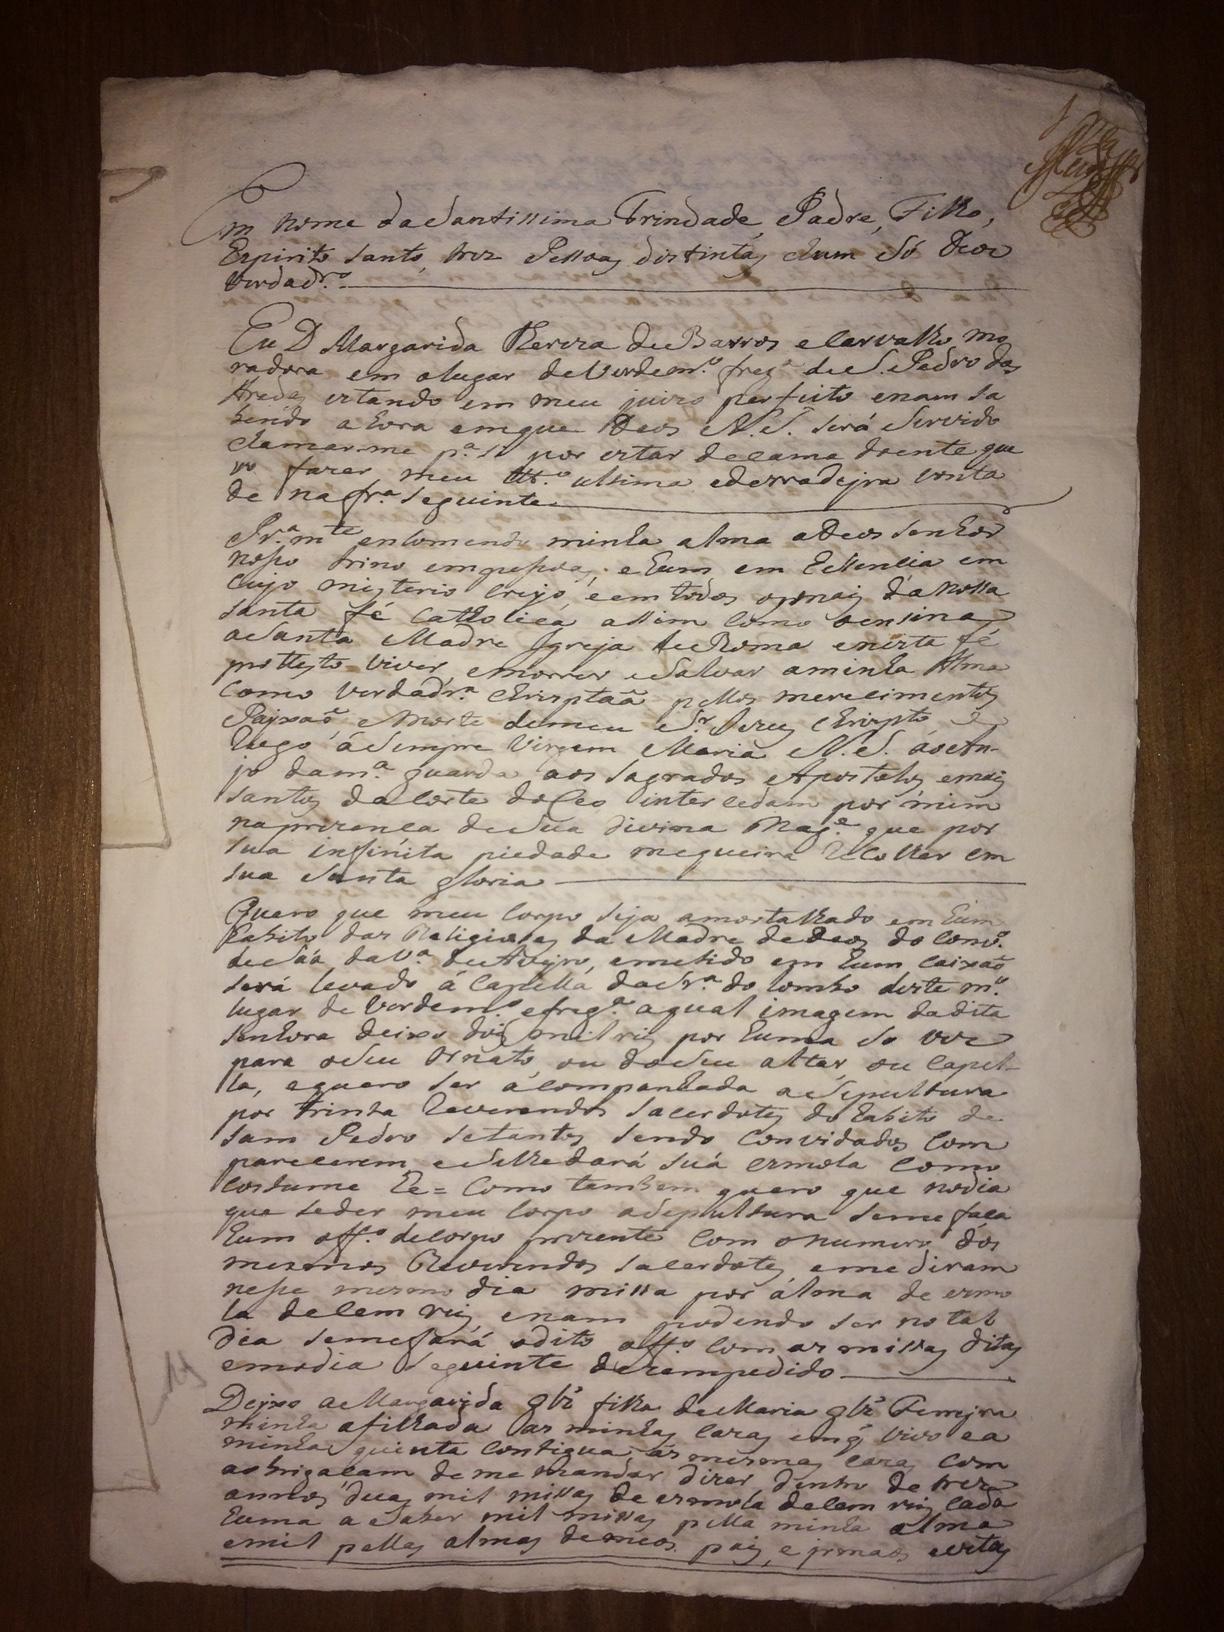 Em nome da Santissima Trindade, Padre, Filho,
Espirito Santo, trez Pessoas distintas, ehum só Deos
Verdadrº
Eu D Margarida Pereira de Barros e Carvalho mo
radora em olugar de Verdemº fregª de S. Pedro das
Aradas estando em meu juizo perfeito enam sa
bendo a hora emque Deos N. S. será Servido
chamarme pª si por estar de cama doente que
ro fazer meu ttº ultima ederradejra vonta
de na frª seguinte
Prªmte encomendo minha alma aDeos Senhor
nosso trino empessoas, ehum em Essencia em
cujo misterio creyo, eemtodos osmais da nossa
santa fé catholica, assim como oensina
aSanta Madre Igreja deRoma enesta fé
protesto viver, emorrer eSalvar aminha Alma
como verdadrª christaã pellos merecimentos
Paixaõ, e Morte demeu Sr. Jezus Christo, e
Rogo á Sempre Virgem Maria N. S. ao An-
jo damª guarda aos Sagrados Apostolos, emais
Santos da Corte do Ceo intercedam por mim
naprezenca de Sua divina Mage. que por
sua infinita piedade mequeira Recolher em
sua Santa gloria
Quero que meu Corpo Seja amortalhado em hum
habito das Religiozas da Madre de Deos do Convº
deSáá da Vª deAveyro, emetido em hum caixaõ
será levado á Capella da Srª do lombo deste mº
lugar de Verdemº efregª aqual imagem dadita
Senhora deixo dois mil reis por huma so vez
para oSeu Ornato, ou do Seu altar, ou Capel-
la, equero ser ácompanhada aSepultura
por trinta Reverendos Sacerdotes do habito de
Sam Pedro Setantos, Sendo Convidados Com
parecerem, eSelhedará suá esmola como
costume he = Como tambem quero que nodia
que seder meu Corpo aSepultura Semefaca
hum offº decorpo prezente com onumero dos
mesmos Reverendos Sacerdotes, emediram
nesse mesmo dia missa por álma de esmo
la de cem reis, enam podendo ser no tal
dia semefará odito offº com as missas ditas
emodia seguinte dezempedido
Deixo aMargarida glz filha deMaria glz Ferrejra
minha afilhada as minhas Cazas emq̃ vivo ea
minha quinta contigua ás mesmas cazas com
aobrigacam deme mandar dizer dentro de trez
annos duas mil missas de esmola decem reis cada
huma a Saber mil missas pella minha alma
emil pellas almas de meos pais, e jrmaõs eestas